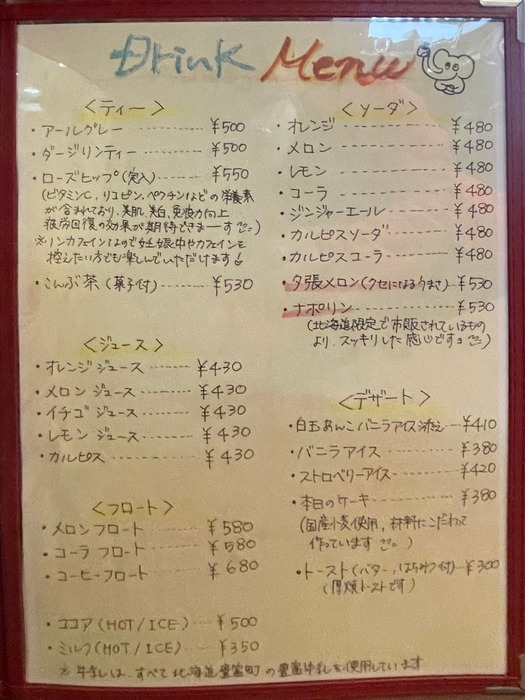 Drink Menu
<ティー>
・アールグレー ¥500
・ダージリンティー ¥500
・ローズヒップ(実入) ¥550
(ビタミンC、リコピン、ペクチンなどの栄養素
が含まれており、美肌、美白、免疫力向上
疲労回復の効果が期待できまーす
※ノンカフェインなので妊娠中やカフェインを
控えたい方でも楽しんでいただけます
・こんぶ茶(菓子付) ¥530
<ジュース>
・オレンジジュース ¥430
・メロンジュース ¥430
・イチゴジュース ¥430
・レモンジュース ¥430
・カルピス ¥430
<フロート>
・メロンフロート ¥580
・コーラフロート ¥580
・コーヒーフロート ¥680
・ココア(HOT/ICE) ¥500
・ミルク(HOT/ICE) ¥350
<ソーダ>
・オレンジ ¥480
・メロン ¥480
・レモン ¥480
・コーラ ¥480
・ジンジャーエール ¥480
・カルピスソーダ ¥480
・カルピスコーラ ¥480
・夕張メロン(クセになるうまさ) ¥530
・ナポリン ¥530
(北海道限定で市販されているもの
より、スッキリした感じです
<デザート>
・白玉あんこバニラアイス添え ¥410
・バニラアイス ¥380
・ストロベリーアイス ¥420
・本日のケーキ ¥380
(国産小麦使用、材料にこだわって
作っています
・トースト(バター、はちみつ付) ¥300
(厚焼トーストです)
※牛乳は、すべて北海道豊富町の豊富牛乳を使用しています